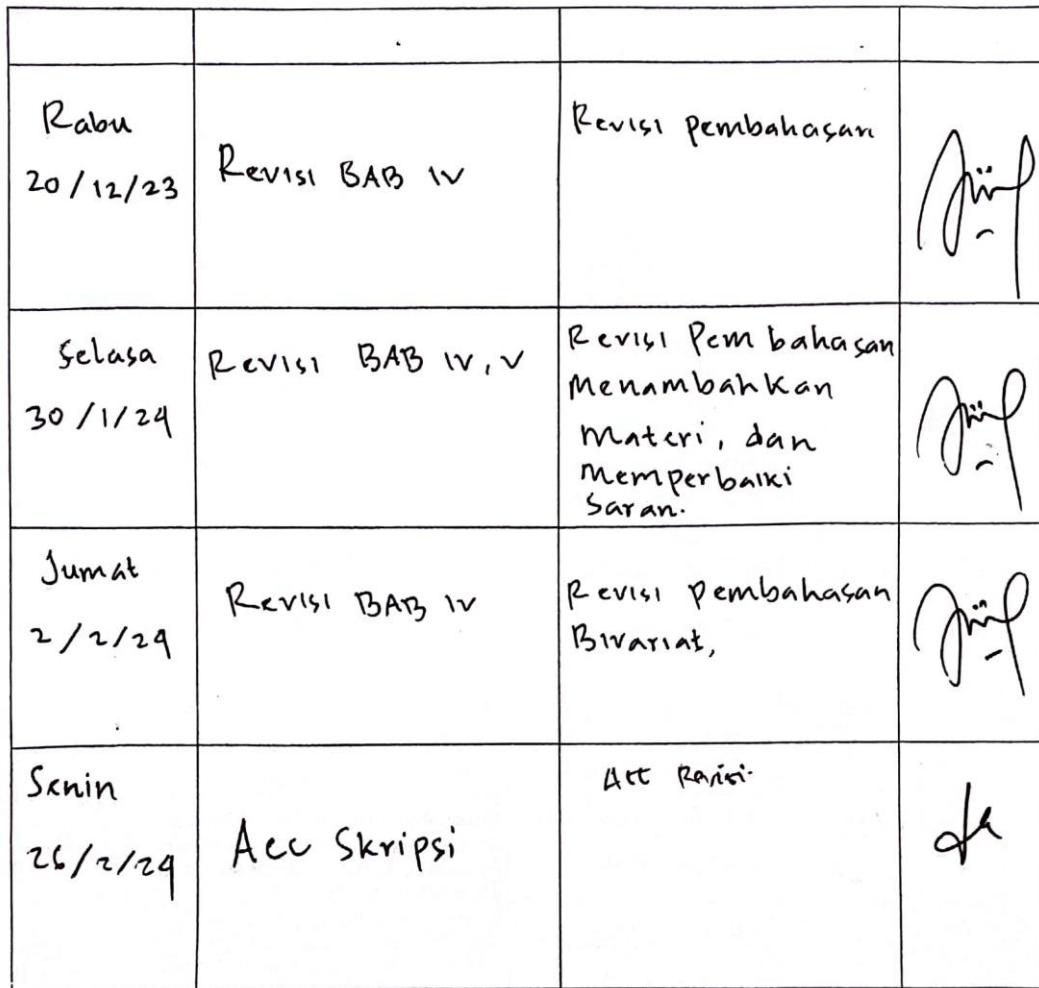 Rabu
20/12/23
Revisi BAB IV
Revisi pembahasan
Selasa
30/1/24
Revisi BAB IV, V
Revisi Pembahasan
Menambahkan
Materi, dan
Memperbaiki
Saran.
Jumat
2/2/24
Revisi BAB IV
Revisi pembahasan
Bivariat,
Senin
26/2/24
Acc Skripsi
Acc Revisi.